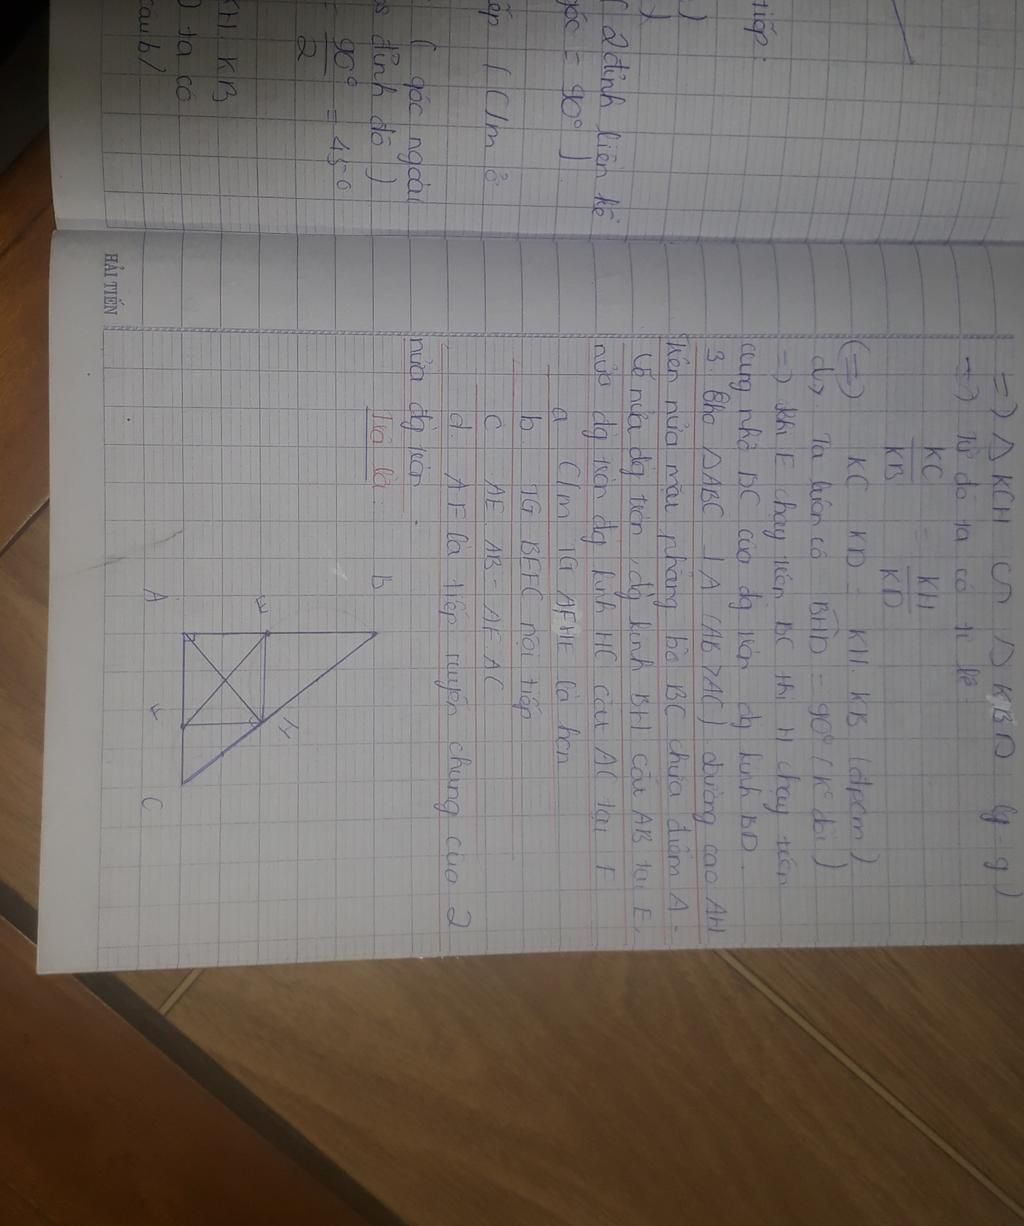 tiếp.
)
( 2 đỉnh liên kề
)
góc = 90° )
ếp ( C/m ở
( góc ngoài
đỉnh đó )
= 90° = 45°
2
KH. KB
) ta có
câu b/
=) Δ KCH ∽ Δ KBD (g-g)
=) Từ đó ta có tỉ lệ
KC = KH
KB KD
(=) KC KD = KH. KB (đpcm)
d, Ta luôn có BHD = 90° (K° đổi)
=) Khi E chạy trên BC thì H chạy trên
cung nhỏ BC của đg tròn đg kính BD.
3. Cho Δ ABC ⊥ A (AB > AC) đường cao AH
Trên nửa mặt phẳng bờ BC chứa điểm A.
Vẽ nửa đg tròn, đg kính BH cắt AB tại E,
nửa đg tròn đg kính HC cắt AC tại F
a C/m TG AFHE là hcn
b. TG BEFC nội tiếp
c AE. AB = AF. AC
d. AF là tiếp tuyến chung của 2
nửa đg tròn
B
E
H
A
F
C
HẢI TIẾN